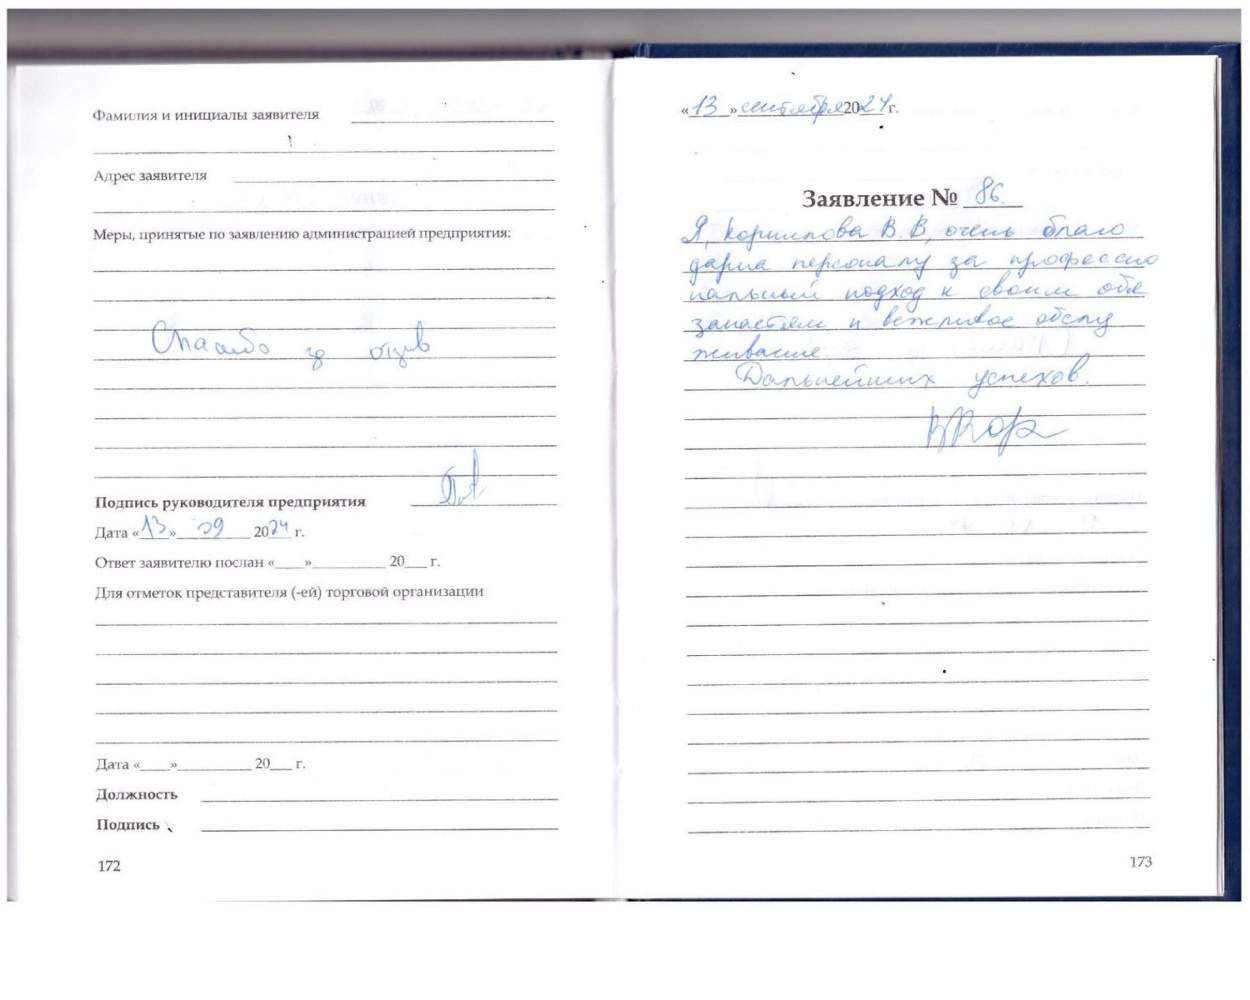 Фамилия и инициалы заявителя
Адрес заявителя
Меры, принятые по заявлению администрацией предприятия:
Спасибо за отзыв
Подпись руководителя предприятия
Дата «13» 09 2024 г.
Ответ заявителю послан «____»__________ 20___ г.
Для отметок представителя (-ей) торговой организации
Дата «____»__________ 20___ г.
Должность
Подпись
172
«13» сентября 2024 г.
Заявление № 86.
Я, В. В, очень благо
дарна персоналу за профессио
нальный подход к своим обя
занностям и вежливое обслу
живание.
Дальнейших успехов.
173